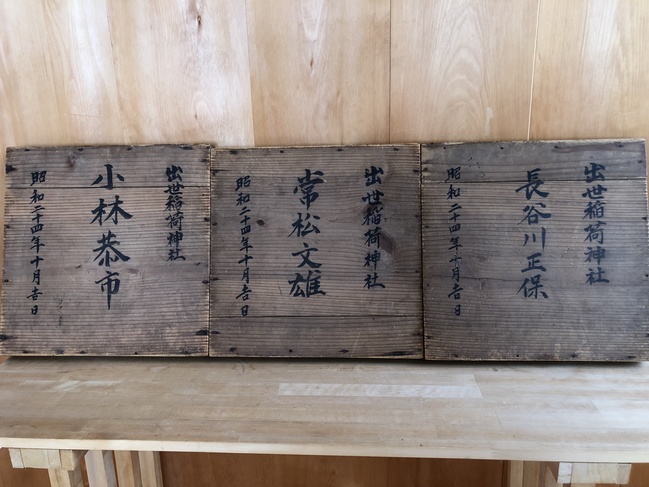 出世稲荷神社
長谷川正保
昭和二十四年十月吉日
出世稲荷神社
常松文雄
昭和二十四年十月吉日
出世稲荷神社
小林恭市
昭和二十四年十月吉日